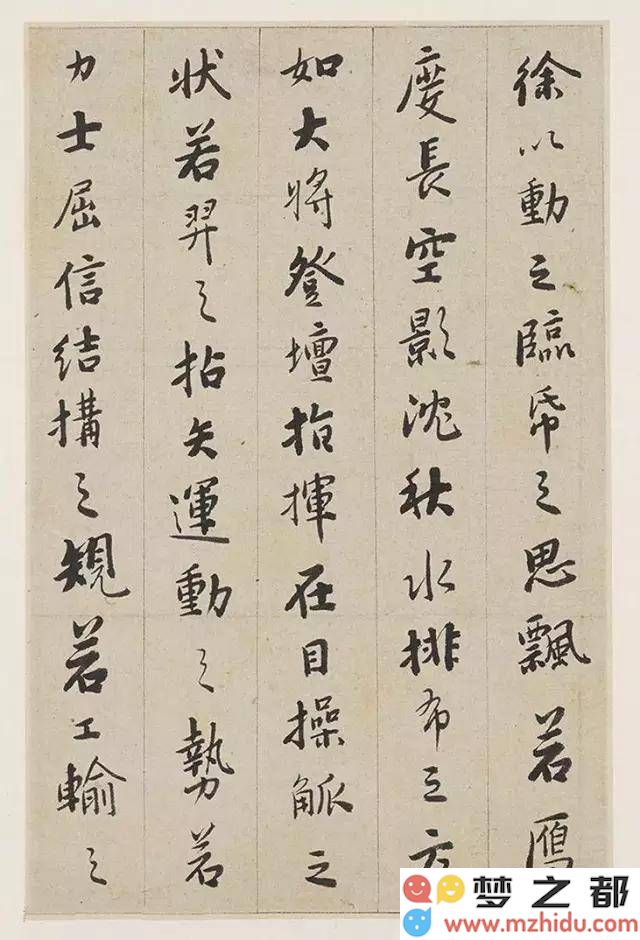 徐以動之臨帋之思飄若鴈
度長空影沈秋水排布之方
如大將登壇指揮在目操觚之
状若羿之拈矢運動之勢若
力士屈信結構之規若工輸之
梦之都
www.mzhidu.com